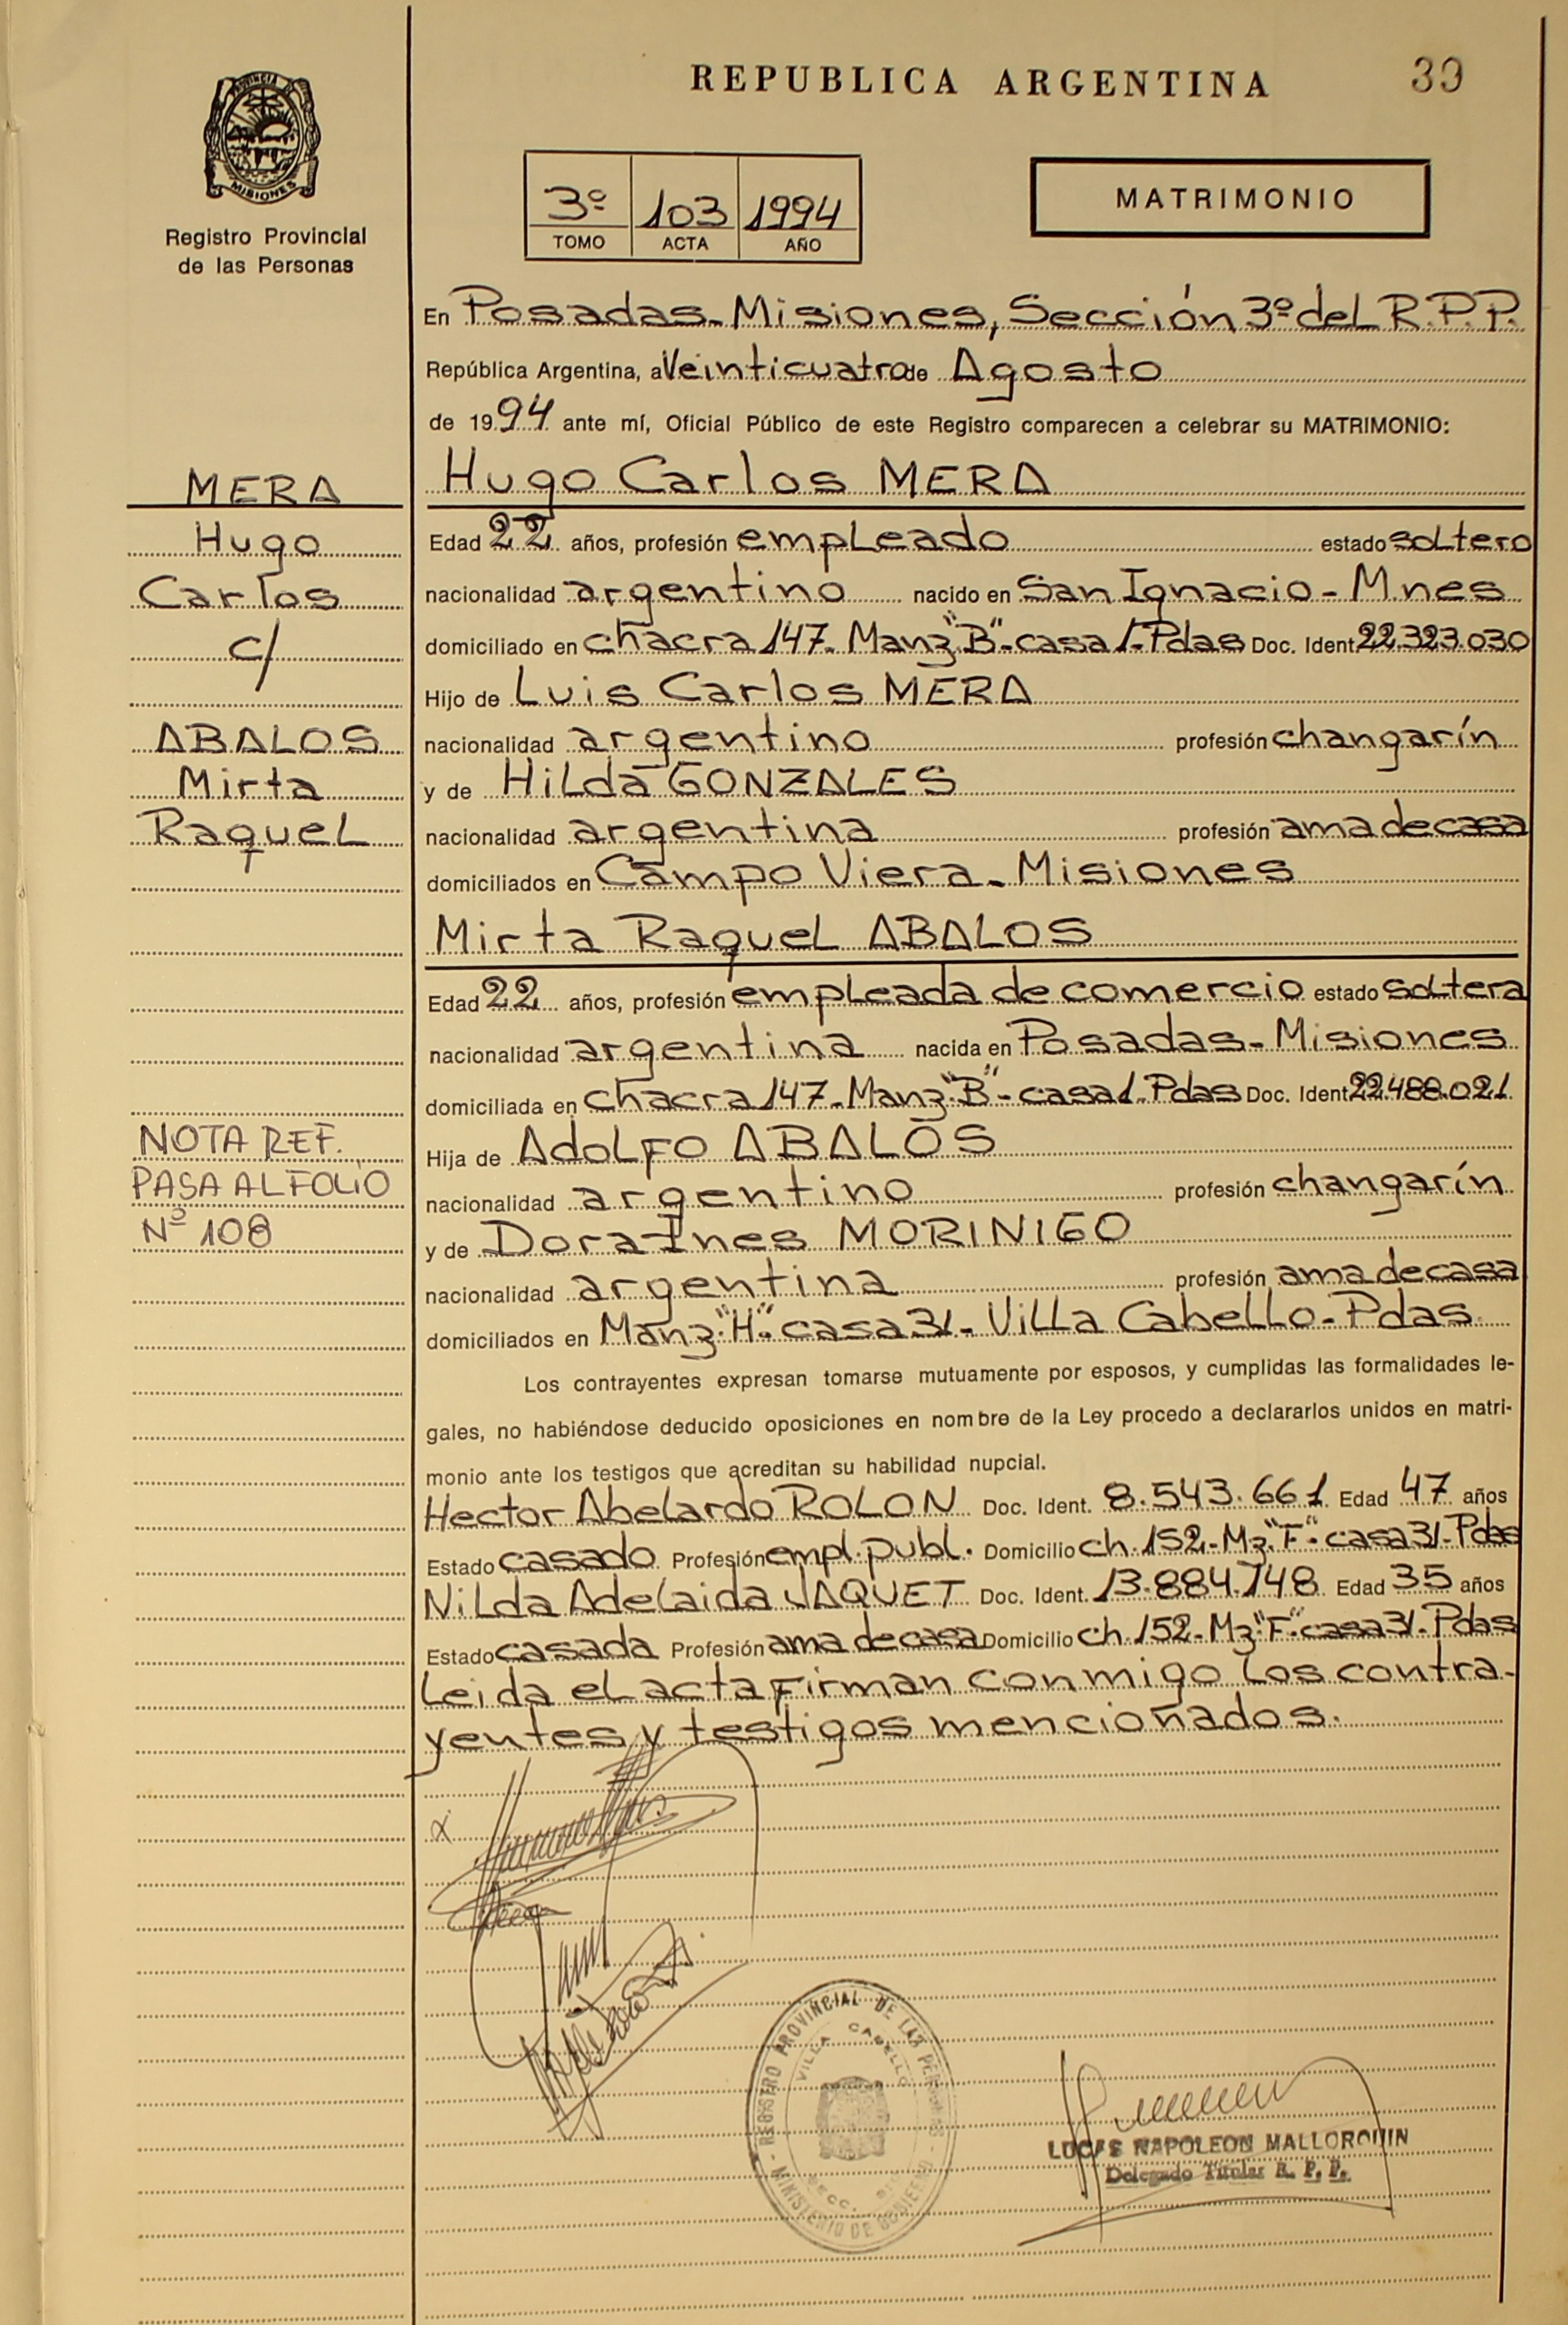 REPUBLICA ARGENTINA
39
PROVINCIA
MISIONES
Registro Provincial
de las Personas
3º 103 1994
TOMO ACTA AÑO
MATRIMONIO
En Posadas-Misiones, Sección 3º del R.P.P.
República Argentina, a Veinticuatro de Agosto
de 1994 ante mí, Oficial Público de este Registro comparecen a celebrar su MATRIMONIO:
Hugo Carlos MERA
Edad 22 años, profesión empleado estado soltero
nacionalidad argentino nacido en San Ignacio - Mnes
domiciliado en chacra 147- Manz "B"- casa 1-Pdas Doc. Ident 22.323.030
Hijo de Luis Carlos MERA
nacionalidad argentino profesión changarín
y de Hilda GONZALES
nacionalidad argentina profesión ama de casa
domiciliados en Campo Viera-Misiones
Mirta Raquel ABALOS
Edad 22 años, profesión empleada de comercio estado soltera
nacionalidad argentina nacida en Posadas-Misiones
domiciliada en chacra 147-Manz "B"- casa 1-Pdas Doc. Ident 22.488.021
Hija de Adolfo ABALOS
nacionalidad argentino profesión changarín
y de Dora Ines MORINIGO
nacionalidad argentina profesión ama de casa
domiciliados en Manz "H"- casa 31- Villa Cabello-Pdas
Los contrayentes expresan tomarse mutuamente por esposos, y cumplidas las formalidades le-
gales, no habiéndose deducido oposiciones en nombre de la Ley procedo a declararlos unidos en matri-
monio ante los testigos que acreditan su habilidad nupcial.
Hector Abelardo ROLON Doc. Ident. 8.543.661 Edad 47 años
Estado casado Profesión empl. publ. Domicilio ch. 152-Mz "F"- casa 31-Pdas
Nilda Adelaida JAQUET Doc. Ident. 13.884.748 Edad 35 años
Estado casada Profesión ama de casa Domicilio ch. 152-Mz "F"- casa 31-Pdas
Leida el acta firman conmigo los contra-
yentes y testigos mencionados.
MERA
Hugo
Carlos
c/
ABALOS
Mirta
Raquel
NOTA REF.
PASA AL FOLIO
Nº 108
REGISTRO PROVINCIAL DE LAS PERSONAS - MINISTERIO DE GOBIERNO
VILLA CABELLO
SECC.
LUCAS NAPOLEON MALLORQUIN
Delegado Titular R. P. P.